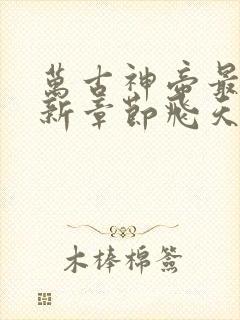 萬古神帝最
新章節飛天
木棒棉簽